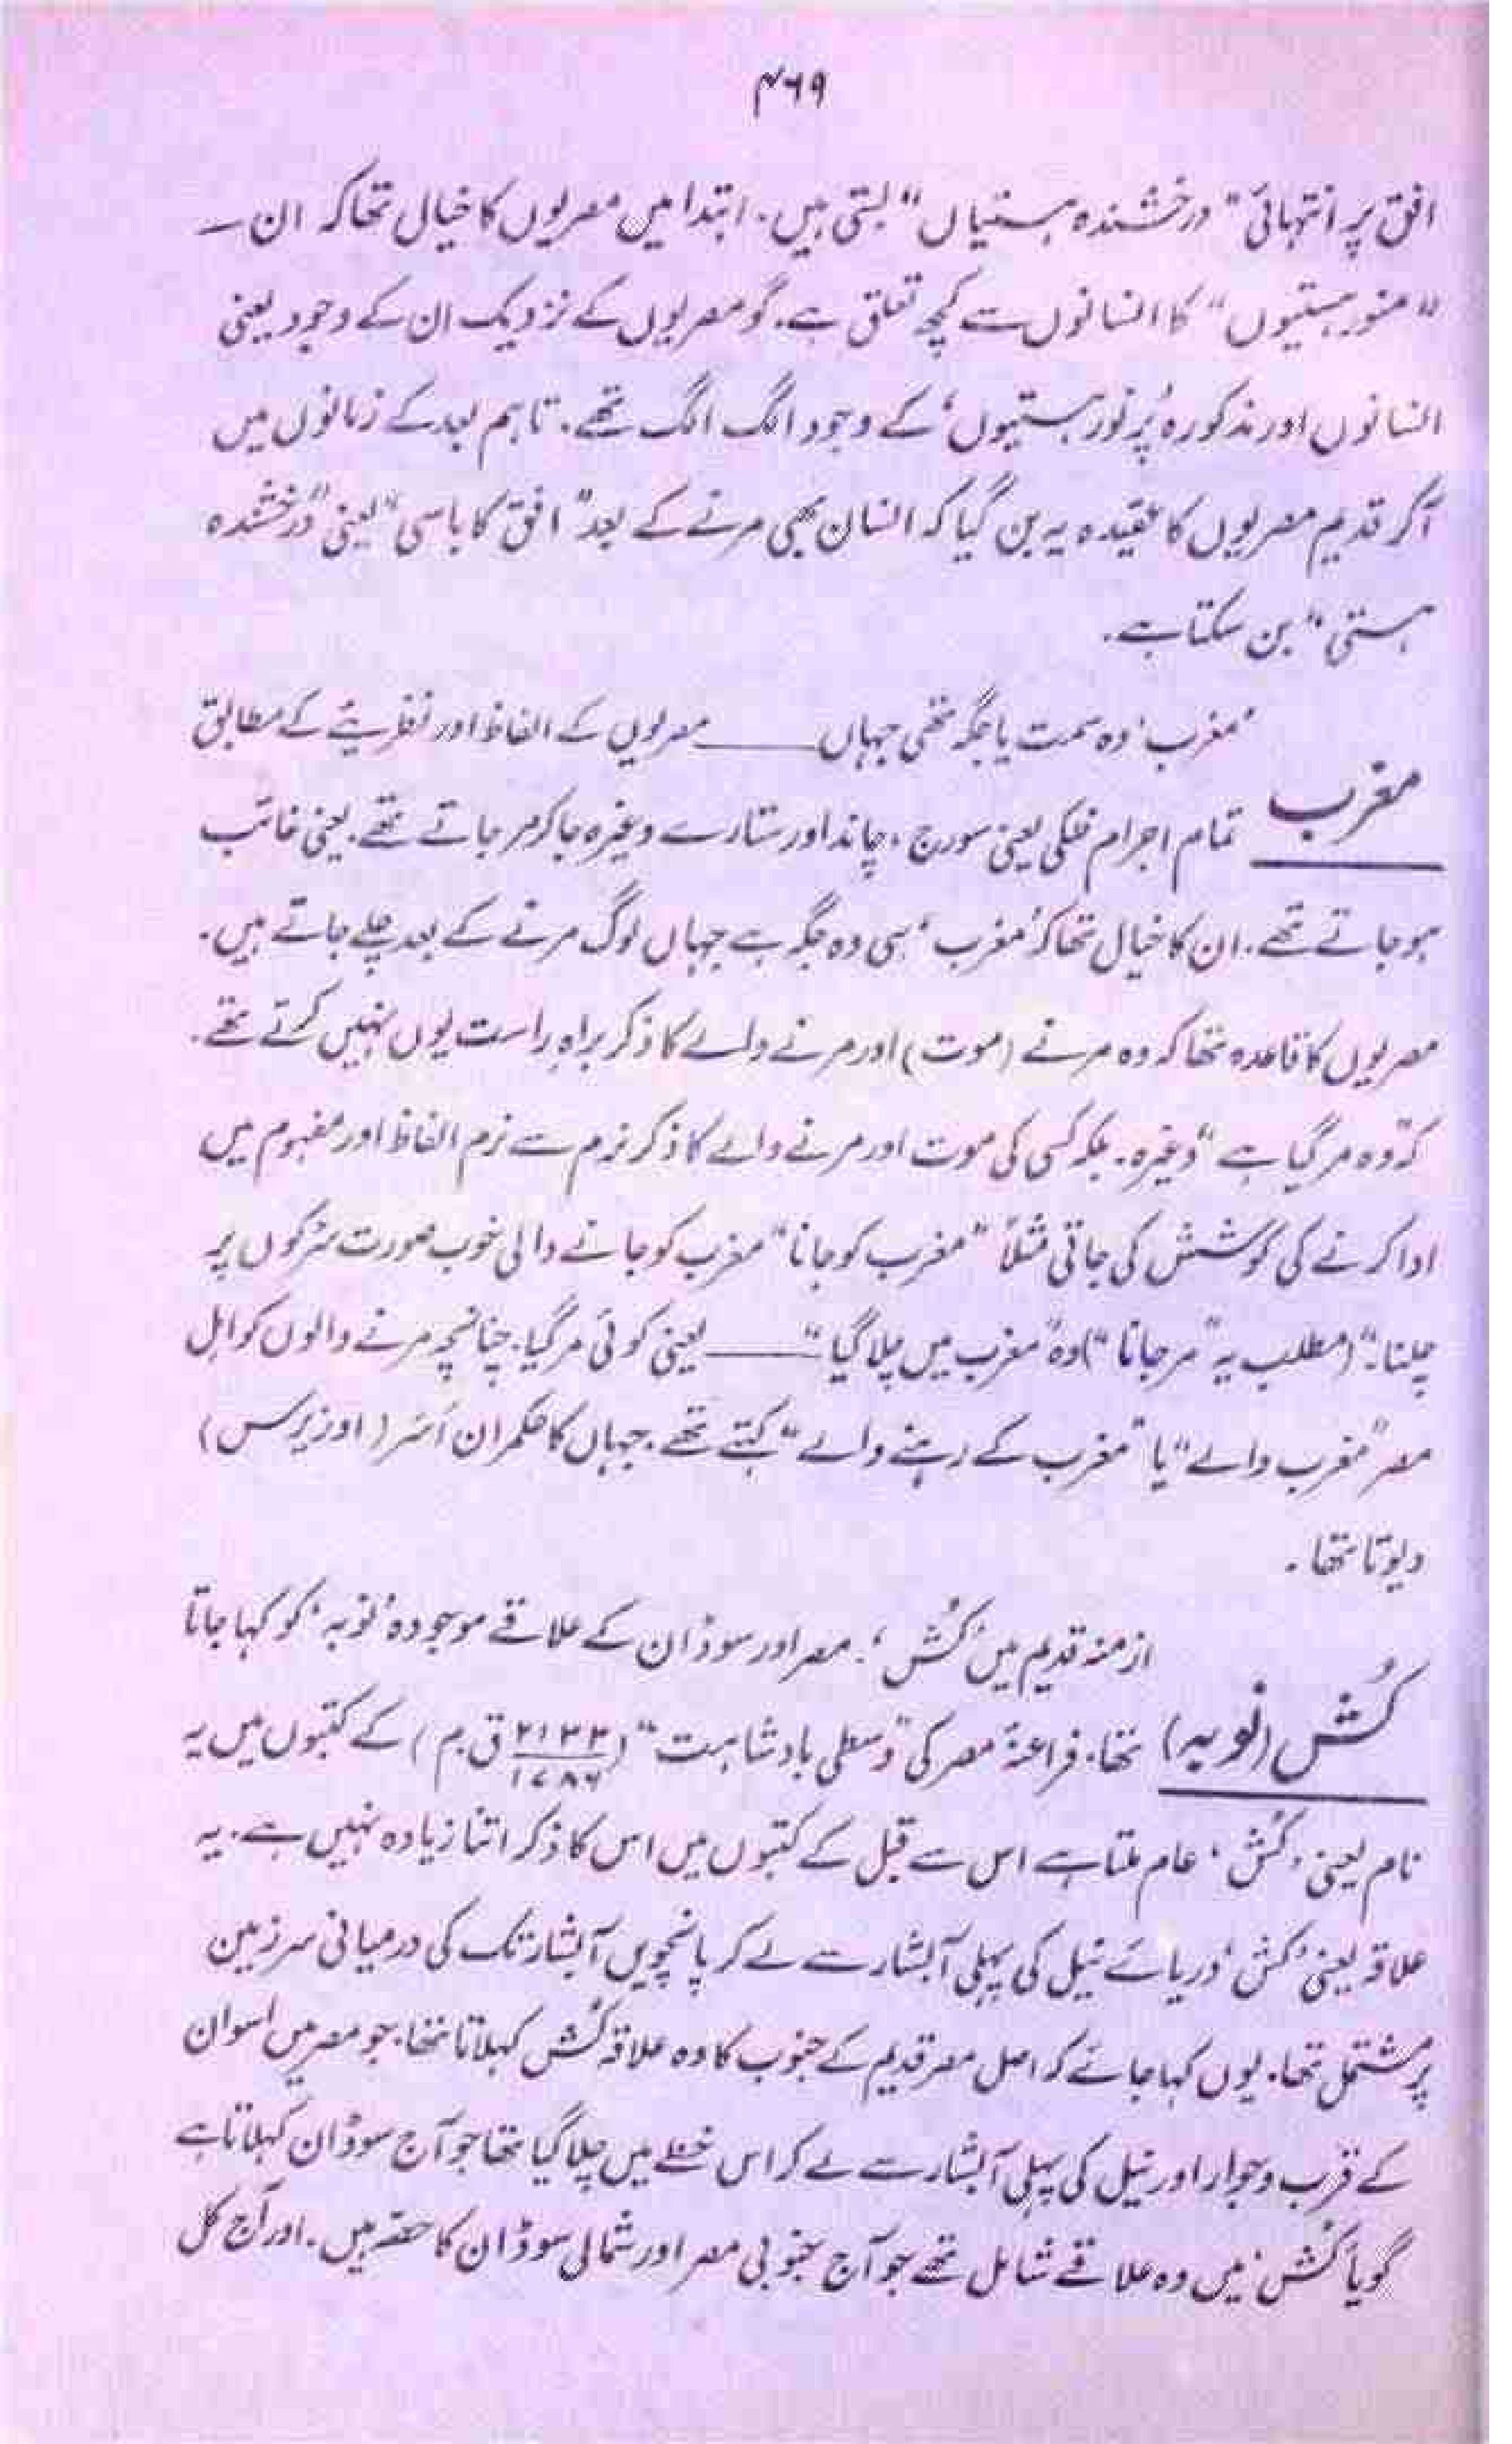 ۴۶۹
افق پر انتہائی "درخشندہ ہستیاں" بستی ہیں۔ ابتدا میں مصریوں کا خیال تھا کہ ان
"منور ہستیوں" کا انسانوں سے کچھ تعلق ہے۔ گو مصریوں کے نزدیک ان کے وجود یعنی
انسانوں اور مذکورہ 'پُرنور ہستیوں' کے وجود الگ الگ تھے۔ تاہم بعد کے زمانوں میں
آکر قدیم مصریوں کا عقیدہ یہ بن گیا کہ انسان بھی مرنے کے بعد "افق کا باسی" یعنی "درخشندہ
ہستی" بن سکتا ہے۔
مغرب
'مغرب' وہ سمت یا جگہ تھی جہاں ــــــ مصریوں کے الفاظ اور نظریئے کے مطابق
تمام اجرام فلکی یعنی سورج، چاند اور ستارے وغیرہ جا کر مر جاتے تھے۔ یعنی غائب
ہو جاتے تھے۔ ان کا خیال تھا کہ 'مغرب' ہی وہ جگہ ہے جہاں لوگ مرنے کے بعد چلے جاتے ہیں۔
مصریوں کا قاعدہ تھا کہ وہ مرنے (موت) اور مرنے والے کا ذکر براہِ راست یوں نہیں کرتے تھے۔
کہ "وہ مر گیا ہے" وغیرہ۔ بلکہ کسی کی موت اور مرنے والے کا ذکر نرم سے نرم الفاظ اور مفہوم میں
ادا کرنے کی کوشش کی جاتی مثلاً "مغرب کو جانا" مغرب کو جانے والی خوب صورت سڑکوں پر
چلنا۔" (مطلب یہ "مر جانا") وہ "مغرب میں چلا گیا" ــــــ یعنی کوئی مر گیا۔ چنانچہ مرنے والوں کو اہل
مصر "مغرب والے" یا "مغرب کے رہنے والے" کہتے تھے۔ جہاں کا حکمران اُسَر (اوزیرس)
دیوتا تھا۔
کُش (نوبیہ)
ازمنہ قدیم میں 'کُش'۔ مصر اور سوڈان کے علاقے موجودہ 'نوبہ' کو کہا جاتا
تھا۔ فراعنۂ مصر کی "وسطی بادشاہت" (۲۱۳۳/۱۷۸۶ ق۔م) کے کتبوں میں یہ
نام یعنی 'کُش' عام ملتا ہے اس سے قبل کے کتبوں میں اس کا ذکر اتنا زیادہ نہیں ہے۔ یہ
علاقہ یعنی 'کش' دریائے نیل کی پہلی آبشار سے لے کر پانچویں آبشار تک کی درمیانی سرزمین
پر مشتمل تھا۔ یوں کہا جائے کہ اصل مصر قدیم کے جنوب کا وہ علاقہ کُش کہلاتا تھا۔ جو مصر میں اسوان
کے قرب و جوار اور نیل کی پہلی آبشار سے لے کر اس خطے میں چلا گیا تھا جو آج سوڈان کہلاتا ہے
گویا 'کُش' میں وہ علاقے شامل تھے جو آج جنوبی مصر اور شمالی سوڈان کا حصّہ ہیں۔ اور آج کل